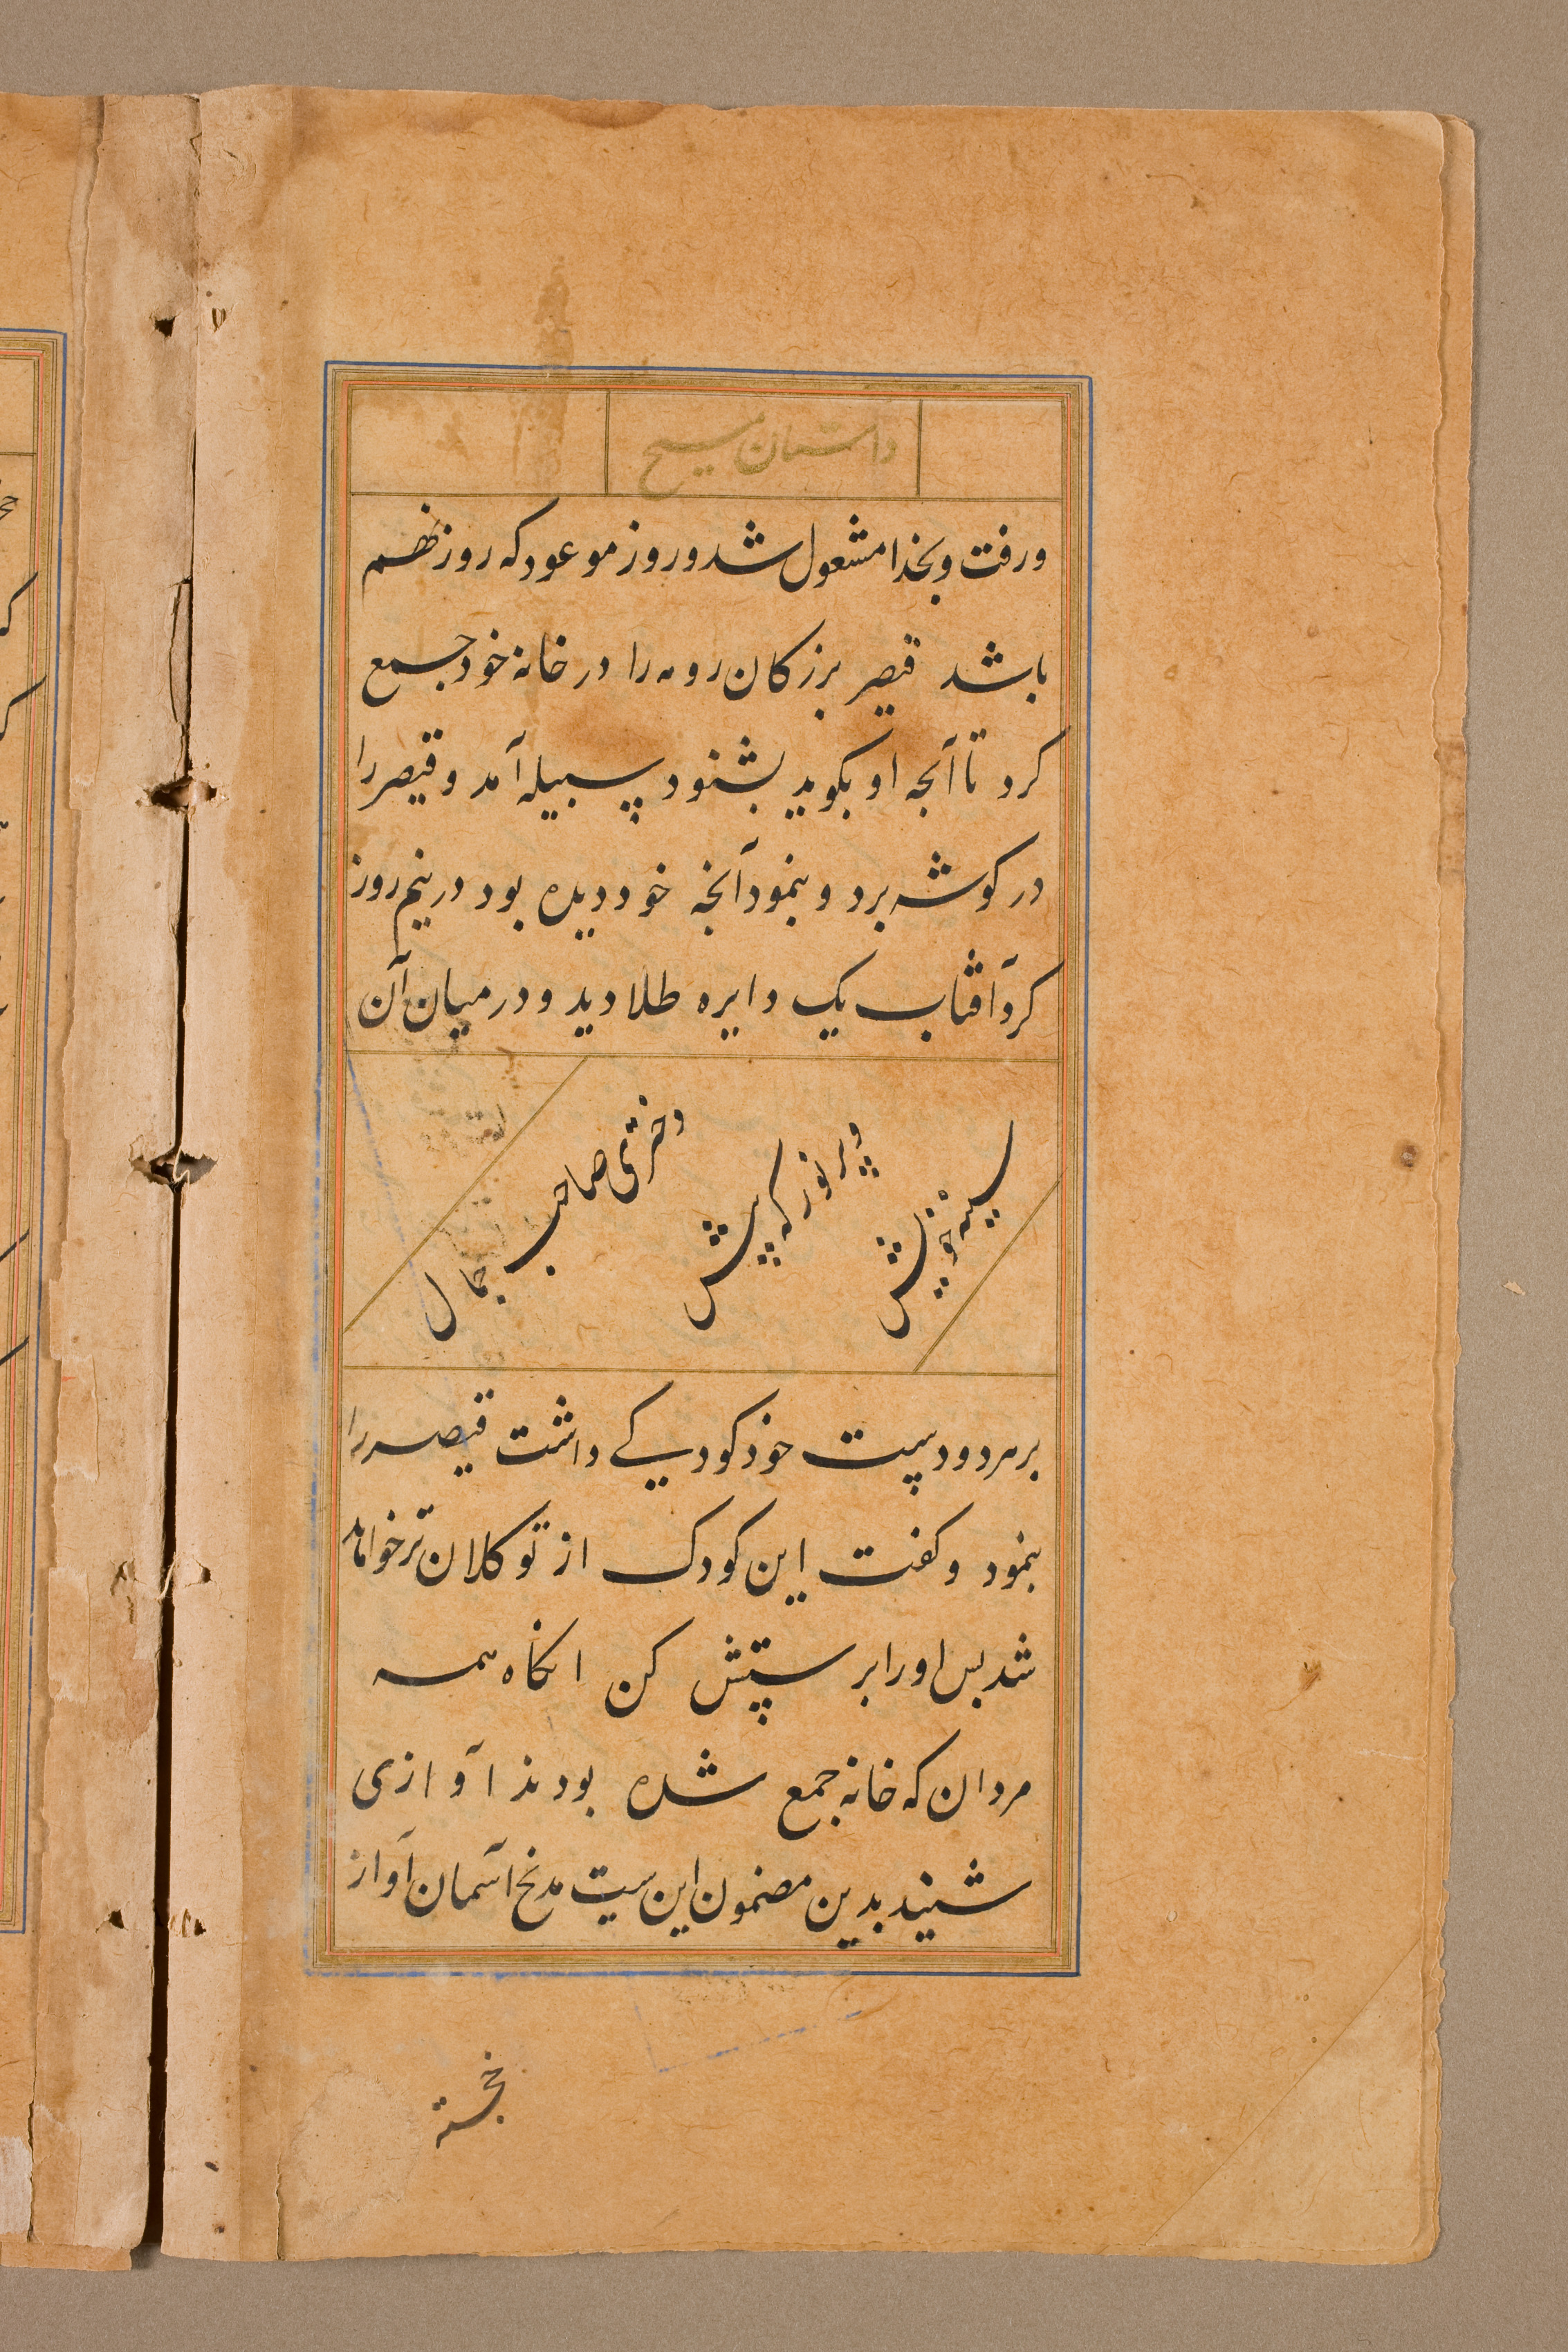 داستان مسیح
ورفت و بخدا مشعول شد و روز موعود که روز نهم
باشد قیصر بزرکان رومه را در خانه خود جمع
کرد تا آنجه او بکوید بشنود سبیله آمد و قیصر را
در کوشه برد و بنمود آنجه خود دیده بود در نیم روز
کرد آفتاب یک دایره طلا دید و در میان آن
دختری صاحب جمال
و پر نور که پیش
سینه خویش
بر هر دو دست خود کودیکے داشت قیصر را
بنمود و کفت این کودک از تو کلان تر خواهد
شد بس او را پرستش کن انکاه همه
مردان که خانه جمع شده بودند آوازی
شنیدند بدین مضمون این ست مذبح آسمان آواز
خجسته